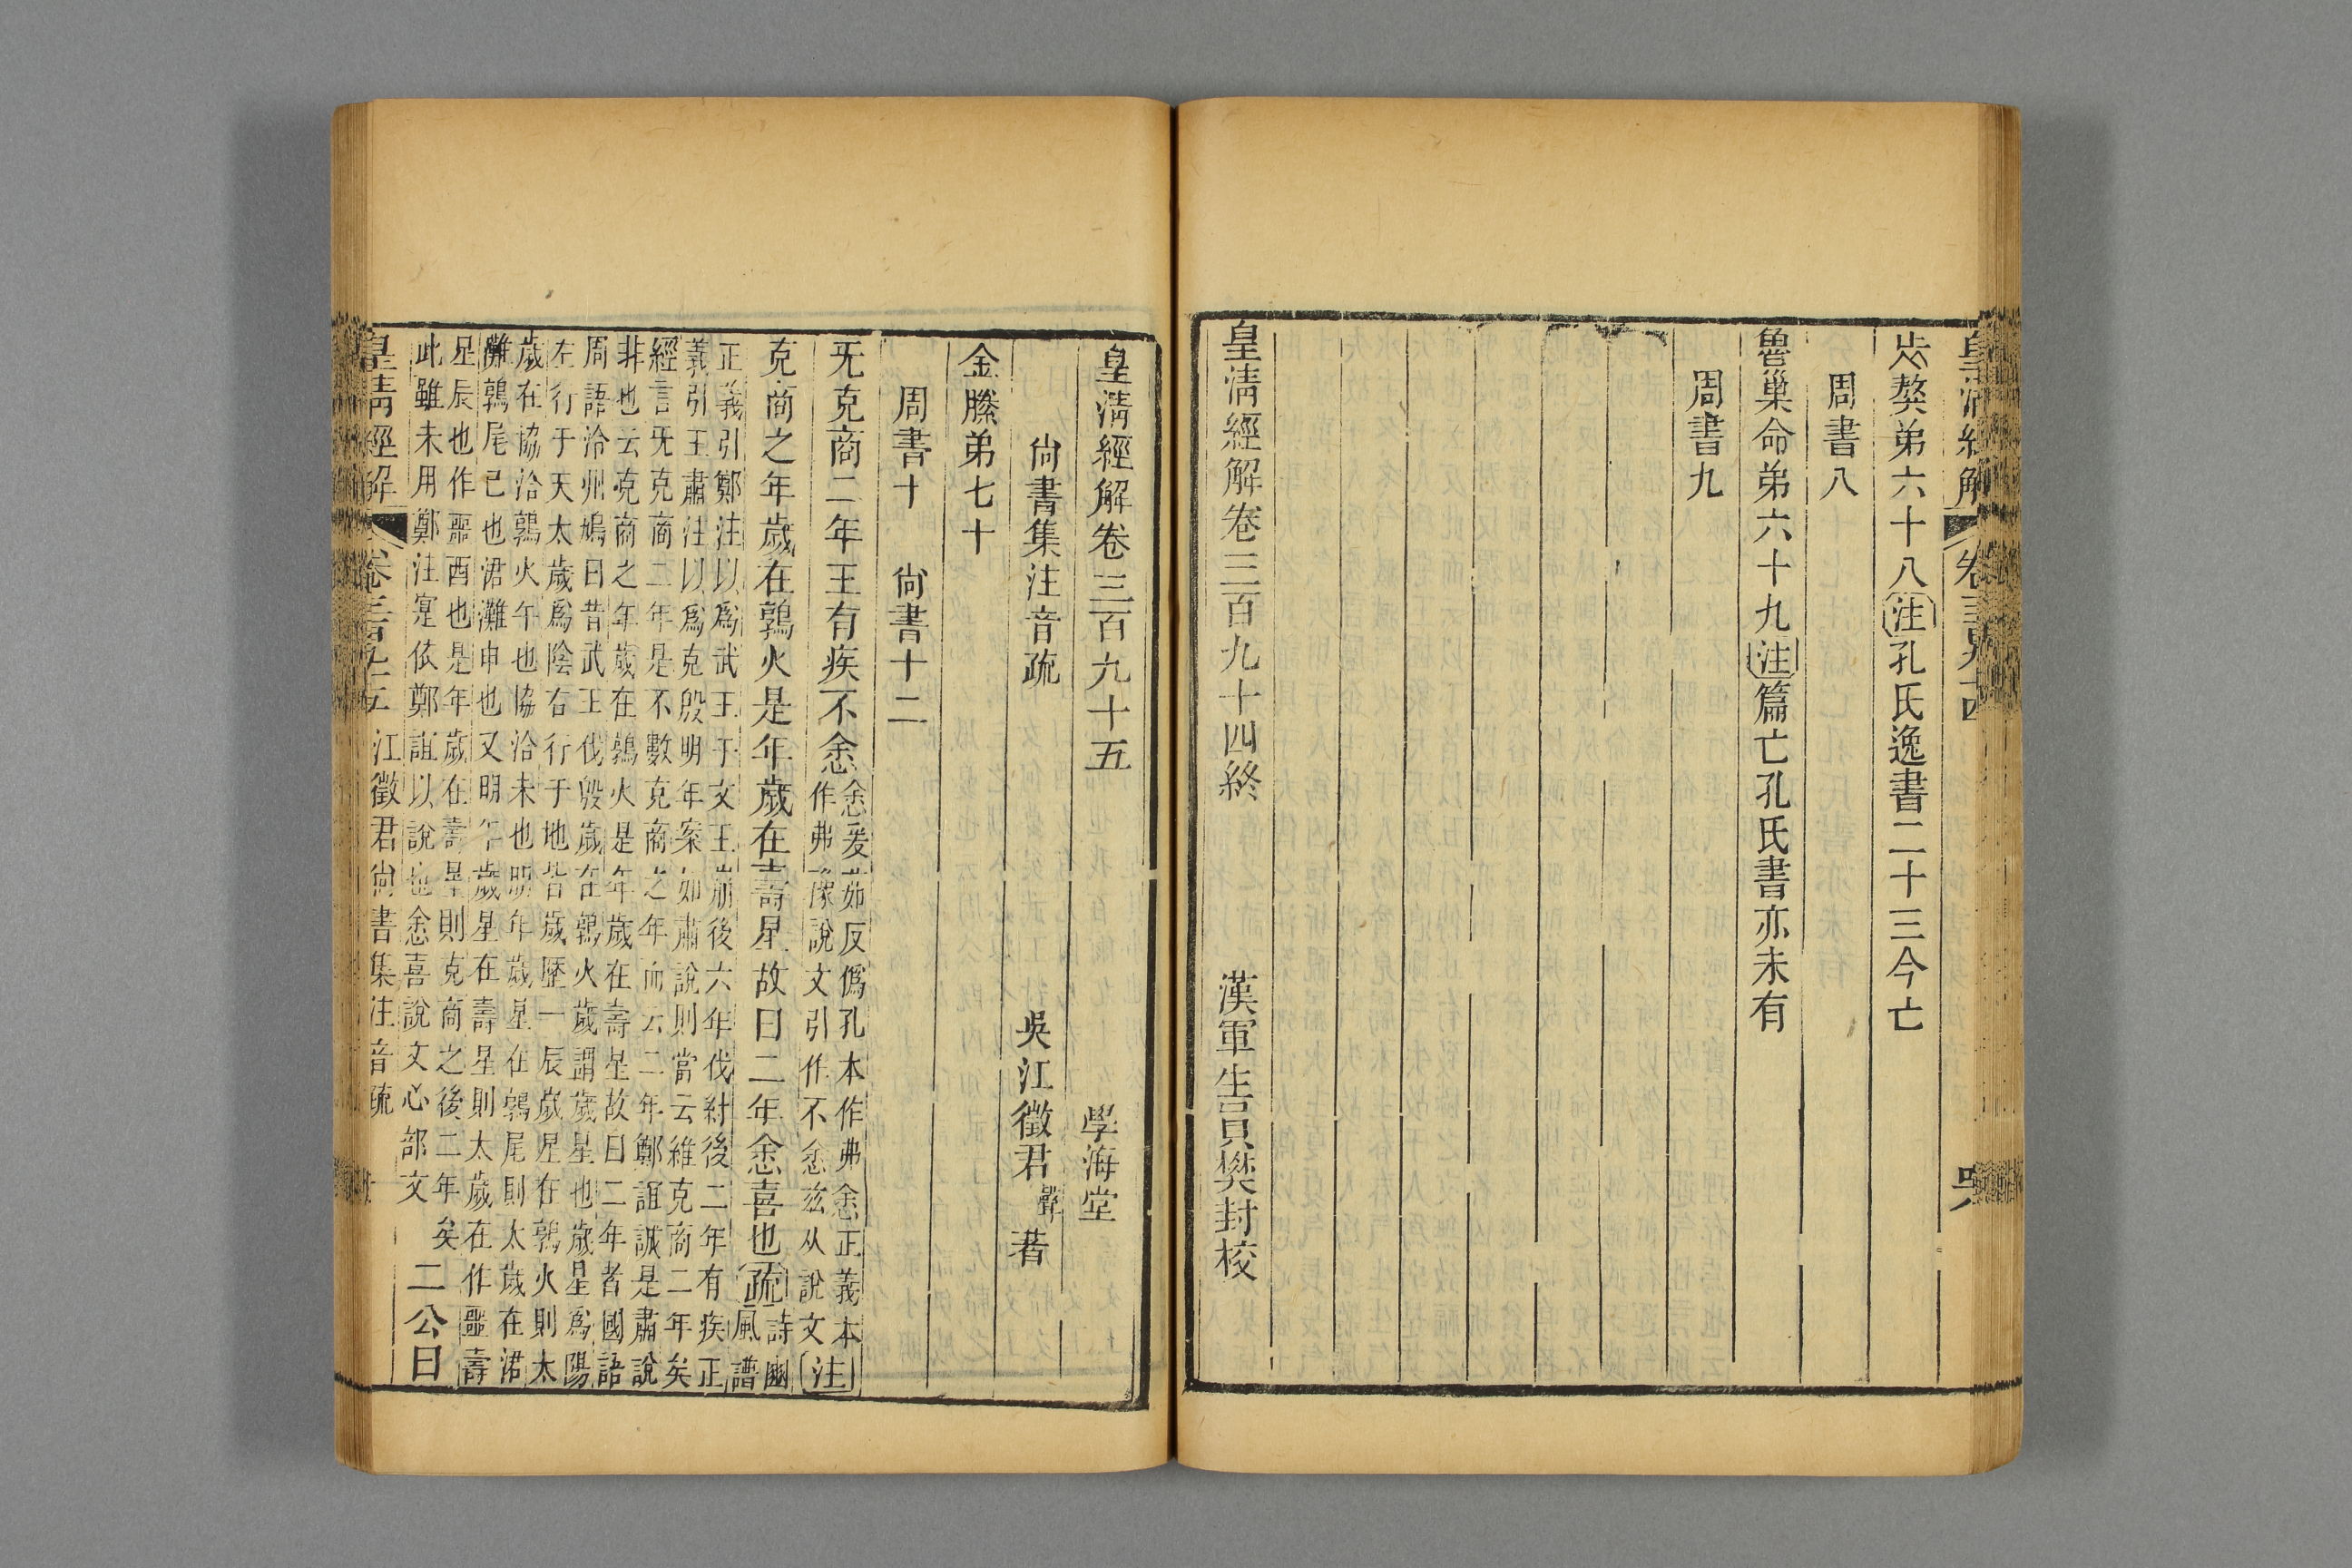 皇清經解 卷三百九十四
𣥠獒弟六十八注孔氏逸書二十三今亡
周書八
魯巢命弟六十九注篇亡孔氏書亦未有
周書九
皇清經解卷三百九十四終 漢軍生員樊封校
皇清經解卷三百九十五 學海堂
尙書集注音疏 吳江徵君聲著
金縢弟七十
周書十 尙書十二
旡克商二年王有疾不悆
悆爰茹反僞孔本作弗悆正義本
作弗豫說文引作不悆玆从說文注
克商之年歲在鶉火是年歲在壽星故曰二年悆喜也疏
詩豳
風譜
正義引鄭注以爲武王于文王崩後六年伐紂後二年有疾正
義引王肅注以爲克殷明年案如肅說則當云維克商二年矣
經言旡克商二年是不數克商之年而云二年鄭誼誠是肅說
非也云克商之年歲在鶉火是年歲在壽星故曰二年者國語
周語泠州鳩曰昔武王伐殷歲在鶉火歲謂歲星也歲星爲陽
左行于天太歲爲陰右行于地皆歲歷一辰歲星在鶉火則太
歲在協洽鶉火午也協洽未也明年歲星在鶉尾則太歲在涒
灘鶉尾巳也涒灘申也又明年歲星在壽星則太歲在作噩壽
星辰也作噩酉也是年歲在壽星則克商之後二年矣
此雖未用鄭注寔依鄭誼以說也悆喜說文心部文
二公曰
皇清經解 卷三百九十五 江徵君尙書集注音疏